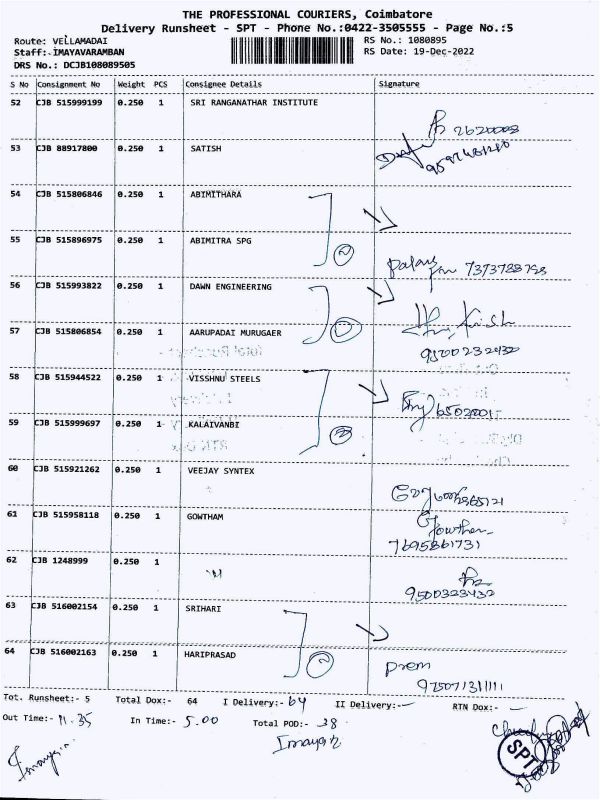 THE PROFESSIONAL COURIERS, Coimbatore
Delivery Runsheet - SPT - Phone No.:0422-3505555 - Page No.:5
Route: VELLAMADAI RS No.: 1080895
Staff: IMAYAVARAMBAN RS Date: 19-Dec-2022
DRS No.: DCJB108089505
S No Consignment No Weight PCS Consignee Details Signature
52 CJB 515999199 0.250 1 SRI RANGANATHAR INSTITUTE
2620008
53 CJB 88917800 0.250 1 SATISH
54 CJB 515806846 0.250 1 ABIMITHARA
55 CJB 515896975 0.250 1 ABIMITRA SPG
2
7373788798
56 CJB 515993822 0.250 1 DAWN ENGINEERING
57 CJB 515806854 0.250 1 AARUPADAI MURUGAER
9500232432
58 CJB 515944522 0.250 1 VISSHNU STEELS
59 CJB 515999697 0.250 1 KALAIVANBI
2
60 CJB 515921262 0.250 1 VEEJAY SYNTEX
61 CJB 515958118 0.250 1 GOWTHAM
Gowtham
7695861731
62 CJB 1248999 0.250 1
9500323432
63 CJB 516002154 0.250 1 SRIHARI
64 CJB 516002163 0.250 1 HARIPRASAD
2
Prem
Tot. Runsheet:- 5 Total Dox:- 64 I Delivery:- 64 II Delivery:- — RTN Dox:- —
Out Time:- 11.35 In Time:- 5.00 Total POD:- 38
Imayan
SPT